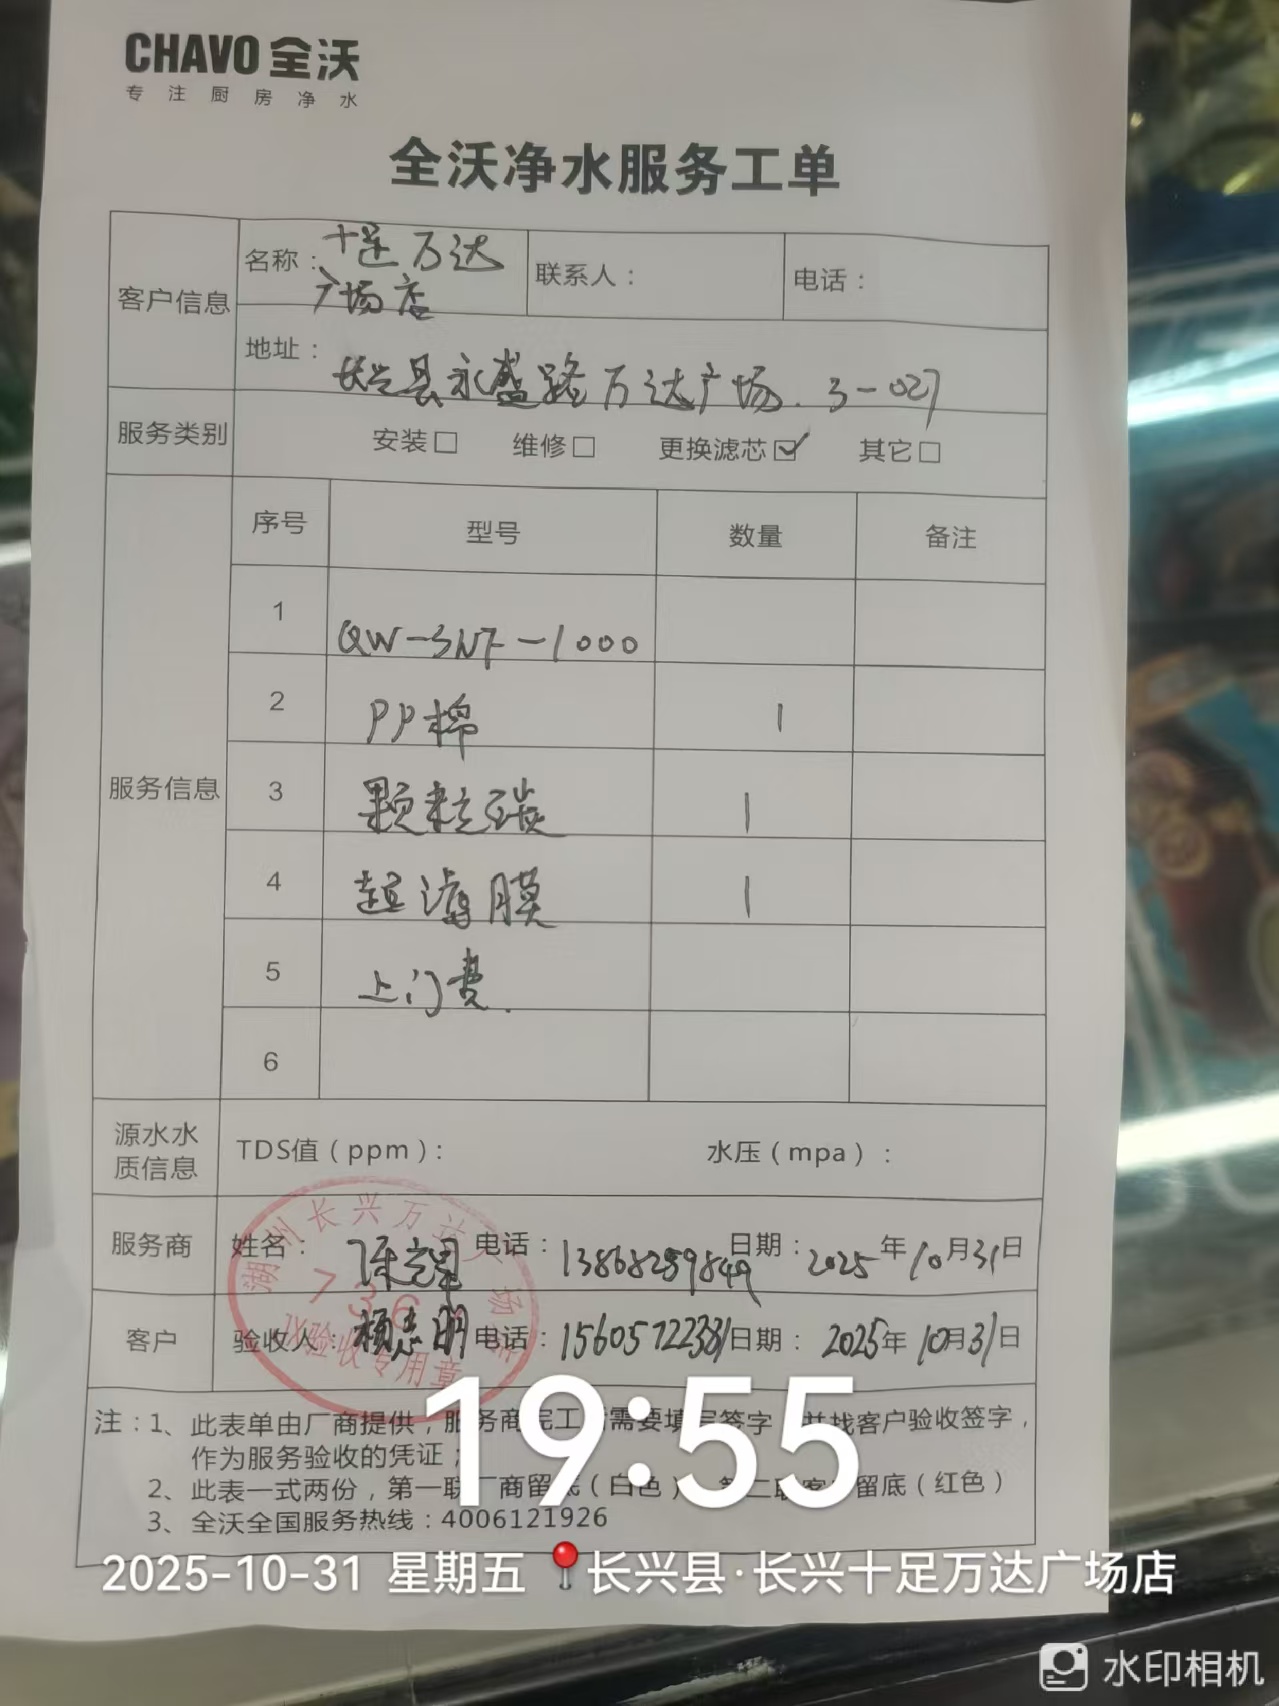 CHAVO 全沃
专注厨房净水
全沃净水服务工单
客户信息
名称：十足万达
广场店
联系人：
电话：
地址：
长兴县永盛路万达广场.3-027
服务类别 安装□ 维修□ 更换滤芯☑ 其它□
服务信息
序号 型号 数量 备注
1 QW-3NF-1000
2 PP棉 1
3 颗粒碳 1
4 超滤膜 1
5 上门费.
6
源水水
质信息
TDS值（ppm）： 水压（mpa）：
服务商 姓名： 电话：13868289849 日期：2025年10月31日
客户 验收人：杨志明 电话：15605722381 日期：2025年10月31日
湖州长兴万达广场店
736
验收专用章
注：1、此表单由厂商提供，服务商完工 需要填写签字 并找客户验收签字，
作为服务验收的凭证；
2、此表一式两份，第一联厂商留底（白色） 第二联客户留底（红色）
3、全沃全国服务热线：4006121926
19:55
2025-10-31 星期五 长兴县·长兴十足万达广场店
水印相机